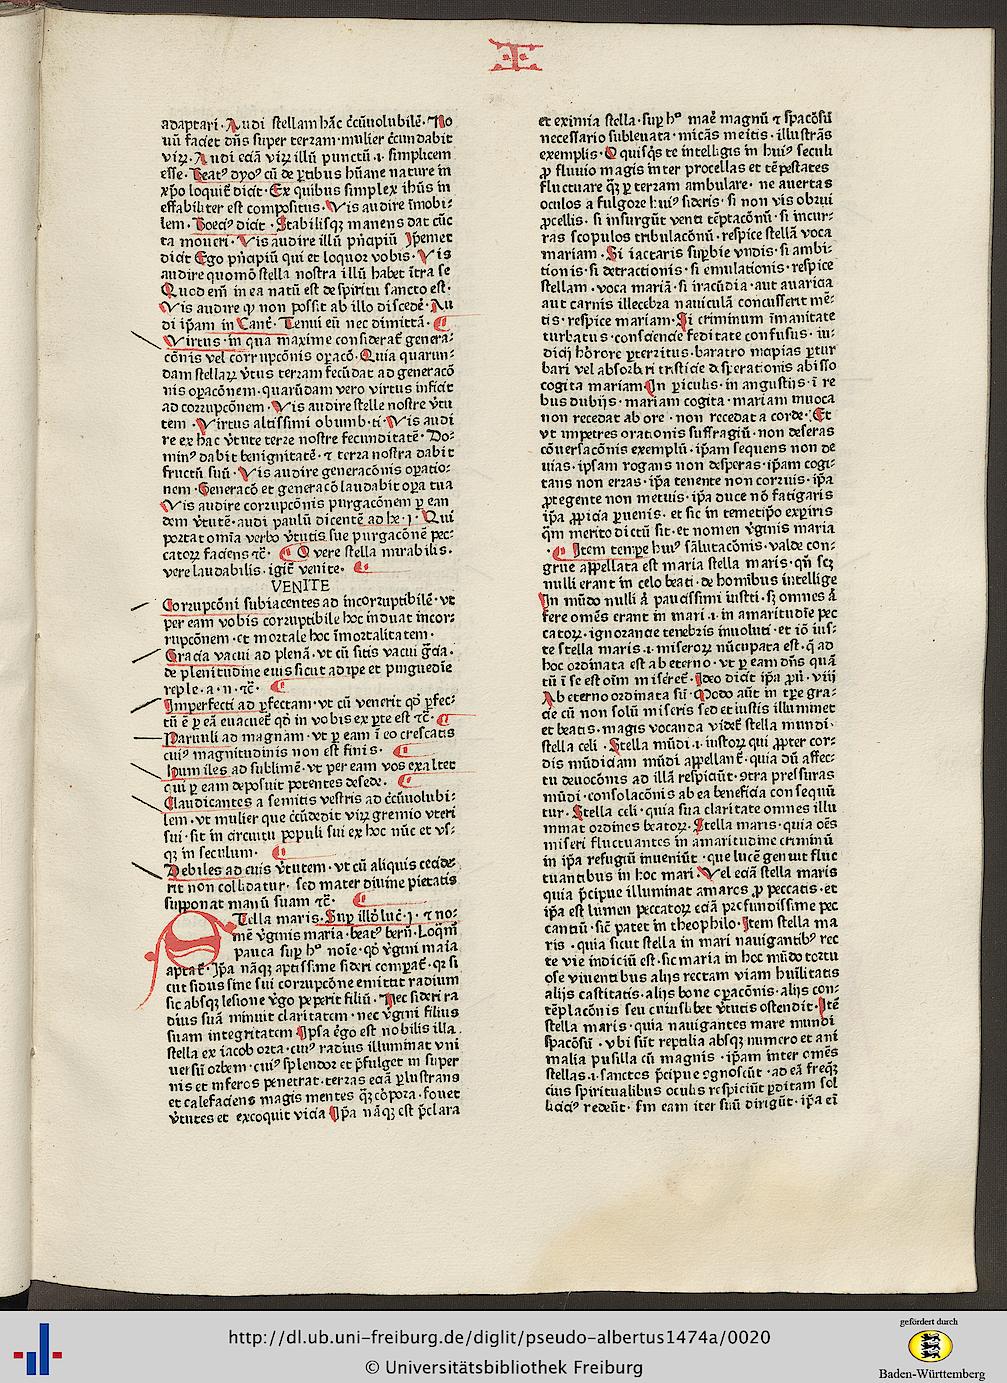 I
adaptari. Audi stellam hāc c̄cūuolubilē. No
uū faciet dn̄s super terram. mulier c̄cūndabit
virꝝ. Audi eciā virꝝ illū punctū .i. simplicem
esse. Beatꝰ dyoꝰ cū de ꝑtibus hūane nature in
xp̄o loquit̄ dicit. Ex quibus simplex ih̄us in
effabiliter est compositus. Vis audire īmobi⸗
lem. Boeciꝰ dicit. Stabilisqꝫ manens dat cūc
ta moueri. Vis audire illū pn̄apiū Ip̄emet
dicit Ego pn̄apiū qui et loquor vobis. Vis
audire quomō stella nostra illū habet ītra se
Quod em̄ in ea natū est de spiritu sancto est.
Vis audire ꝙ non possit ab illo discedē. Au
di ip̄am in Cant̄. Tenui eū nec dimittā. ¶
Virtus. in qua maxime considerat̄ genera⸗
cōnis vel corrupcōnis oꝑacō. Quia quarun⸗
dam stellarꝝ v̄tus terram fecūdat ad generacō
nis oꝑacōnem. quarūdam vero virtus inficit
ad corrupcōnem. Vis audire stelle nostre v̄tu
tem. Virtus altissimi obumb. ti. Vis audi
re ex hac v̄tute terre nostre fecunditatē. Do⸗
minꝰ dabit benignitatē. ⁊ terra nostra dabit
fructū suū. Vis audire generacōnis oꝑatio⸗
nem. Generacō et generacō laudabit oꝑa tua
Vis audire corrupcōnis purgacōnem ꝑ ean
dem v̄tutē. audi paulū dicentē ad he. j. Qui
portat omīa verbo v̄tutis sue purgacōnē pec⸗
catorꝝ faciens ⁊c̄. ¶ O vere stella mirabilis.
vere laudabilis. igit̄ venite. ¶
VENITE
Corrupcōni subiacentes ad incorruptibilē. vt
per eam vobis corruptibile hoc induat incor⸗
rupcōnem. et mortale hoc īmortalitatem.
Gracia vacui ad plenā. vt cū sitis vacui gr̄cia.
de plenitudine eius sicut adipe et pinguedīe
reple. a. n. ⁊c̄. ¶
Imperfecti ad ꝑfectam. vt cū venerit qd̄ ꝑfec⸗
tū ē ꝑ eā euacuet̄ qd̄ in vobis ex ꝑte est ⁊c̄. ¶
Paruuli ad magnam. vt ꝑ eam ī eo crescatis
cuiꝰ magnitudinis non est finis. ¶
Humiles ad sublimē. vt per eam vos exaltet
qui ꝑ eam deposuit potentes de sede. ¶
Claudicantes a semitis vestris ad c̄cūuolubi⸗
lem. vt mulier que c̄cūdedit virꝝ gremio vteri
sui. sit in circuitu populi sui ex hoc nūc et vs⸗
qꝫ in seculum. ¶
Debiles ad eius v̄tutem. vt cū aliquis cecide
rit non collidatur. sed mater diuine pietatis
supponat manū suam ⁊c̄. ¶
STella maris. Suꝑ illo luc̄. j. ⁊ no⸗
mē v̄ginis maria. beatꝰ bern̄. Loqm̄
pauca suꝑ hꝰ noīe. qd̄ v̄gini maīa
aptat̄. Ip̄a nāqꝫ aptissime sideri comꝑat̄. qꝛ si
cut sidus sine sui corrupcōne emittit radium
sic absqꝫ lesione v̄go peperit filiū. Nec sideri ra
dius suā minuit claritatem. nec v̄gini filius
suam integritatem Ipsa ḡo est nobilis illa.
stella ex iacob orta. cuiꝰ radius illuminat vni
uersū orbem. cuiꝰ splendor et p̄fulget in super
nis et inferos penetrat. terras eciā ꝑlustrans
et calefaciens magis mentes qꝫ corpora. fouet
v̄tutes et excoquit vicia Ip̄a nāqꝫ est p̄clara
et eximia stella. suꝑ hꝰ mar̄ magnū ⁊ spacōsū
necessario subleuata. micās meītis. illustrās
exemplis. O quisqs te intelligis in huiꝰ seculi
ꝓ fluuio magis inter procellas et tēpestates
fluctuare qꝫ ꝑ terram ambulare. ne auertas
oculos a fulgore huiꝰ sideris. si non vis obrui
ꝓcellis. si insurgūt venti tēptacōnū. si incur⸗
ras scopulos tribulacōnū. respice stellā voca
mariam. Si iactaris suꝑbie vndis. si ambi⸗
tionis. si detractionis. si emulationis. respice
stellam. voca mariā. si iracūdia. aut auaricia
aut carnis illecebra nauiculā concusserit mē⸗
tis. respice mariam. Si criminum īmanitate
turbatus. consciencie feditate confusus. iu⸗
dicij horrore ꝑterritus. baratro incipias ꝑtur
bari vel absorbri tristicie desperationis abisso
cogita mariam In ꝑiculis. in angustijs. ī re
bus dubijs. mariam cogita. mariam inuoca
non recedat ab ore. non recedat a corde. Et
vt impetres orationis suffragiū. non deseras
cōuersacōnis exemplū. ip̄am sequens non de
uias. ipsam rogans non desperas. ip̄am cogi⸗
tans non erras. ip̄a tenente non corruis. ip̄a
ꝓtegente non metuis. ip̄a duce nō fatigaris
ip̄a ꝓpicia ꝑuenis. et sic in temetip̄o expiris
qm̄ merito dictū sit. et nomen v̄ginis maria
¶ Item tempe huiꝰ sālutacōnis. valde con⸗
grue appellata est maria stella maris. qn̄ scꝫ
nulli erant in celo beati. de hominibus intellige
In mūdo nulli aūt paucissimi iusti. sꝫ omnes aūt
fere omēs erant in mari .i. in amaritudine pec
catorꝝ. ignorancie tenebris inuoluti. et iō ius⸗
te stella maris .i. miserorꝝ nūcupata est. q̄ ad
hoc ordinata est ab eterno. vt ꝑ eam dn̄s quā
tū ī se est oīm miseret̄. Ideo dicit ip̄a ꝓu̅. viij
Ab eterno ordinata sū. Modo aūt in tꝑe gra⸗
cie cū non solū miseris sed et iustis illuminet
et beatis. magis vocanda videt̄ stella mundi.
stella celi. Stella mūdi .i. iustorꝝ qui ꝓpter cor⸗
dis mūdiciam mūdi appellant̄. quia dū affec⸗
tu deuocōnis ad illā respiciūt. ɔtra pressuras
mūdi. consolacōnis ab ea beneficia consequū
tur. Stella celi. quia sua claritate omnes illu
minat ordines beatorꝝ. Stella maris. quia oēs
miseri fluctuantes in amaritudine criminū
in ip̄a refugiū inueniūt. que lucē genuit fluc
tuantibus in hoc mari. Vel eciā stella maris
quia p̄cipue illuminat amaros ꝓ peccatis. et
ip̄a est lumen peccatorꝝ eciā profundissime pec
cantiū. sic̄ patet in theophilo. Item stella ma
ris. quia sicut stella in mari nauigantibꝰ rec
te vie indiciū est. sic maria in hoc mūdo tortu
ose viuentibus alijs rectam viam huīlitatis
alijs castitatis. alijs bone oꝑacōnis. alijs con⸗
tēplacōnis seu cuiuslibet v̄tutis ostendit. Itē
stella maris. quia nauigantes mare mundi
spacōsū. vbi sūt reptilia absqꝫ numero et ani
malia pusilla cū magnis. ip̄am inter omēs
stellas .i. sanctos p̄cipue ɔgnoscūt. ad eā freqꝫ
cius spiritualibus oculis respiciūt ꝑditam sol
liciciꝰ redeūt. sm̄ eam iter suū dirigūt. ip̄a eī
http://dl.ub.uni-freiburg.de/diglit/pseudo-albertus1474a/0020
© Universitätsbibliothek Freiburg
gefördert durch
Baden-Württemberg